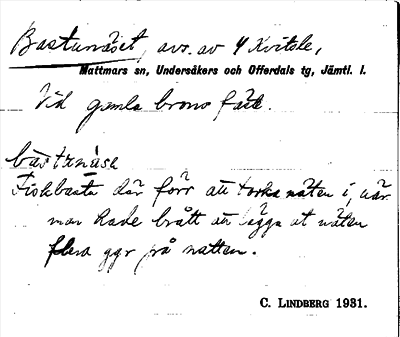 Bastunäset, avs. av 4 Kvitsle,
Mattmars sn, Undersåkers och Offerdals tg, Jämtl. l.
Vid gamla brons fäste.
bastunäse
Fiskbasta där förr att torka näten i, när
man hade brått att lägga ut näten
flera ggr på natten.
C. LINDBERG 1931.